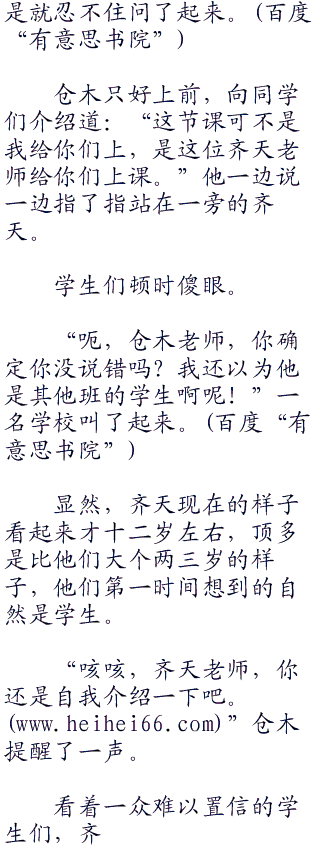 是就忍不住问了起来。(百度
“有意思书院”)
仓木只好上前，向同学
们介绍道：“这节课可不是
我给你们上，是这位齐天老
师给你们上课。”他一边说
一边指了指站在一旁的齐
天。
学生们顿时傻眼。
“呃，仓木老师，你确
定你没说错吗？我还以为他
是其他班的学生啊呢！”一
名学校叫了起来。(百度“有
意思书院”)
显然，齐天现在的样子
看起来才十二岁左右，顶多
是比他们大个两三岁的样
子，他们第一时间想到的自
然是学生。
“咳咳，齐天老师，你
还是自我介绍一下吧。
(www.heihei66.com)”仓木
提醒了一声。
看着一众难以置信的学
生们，齐